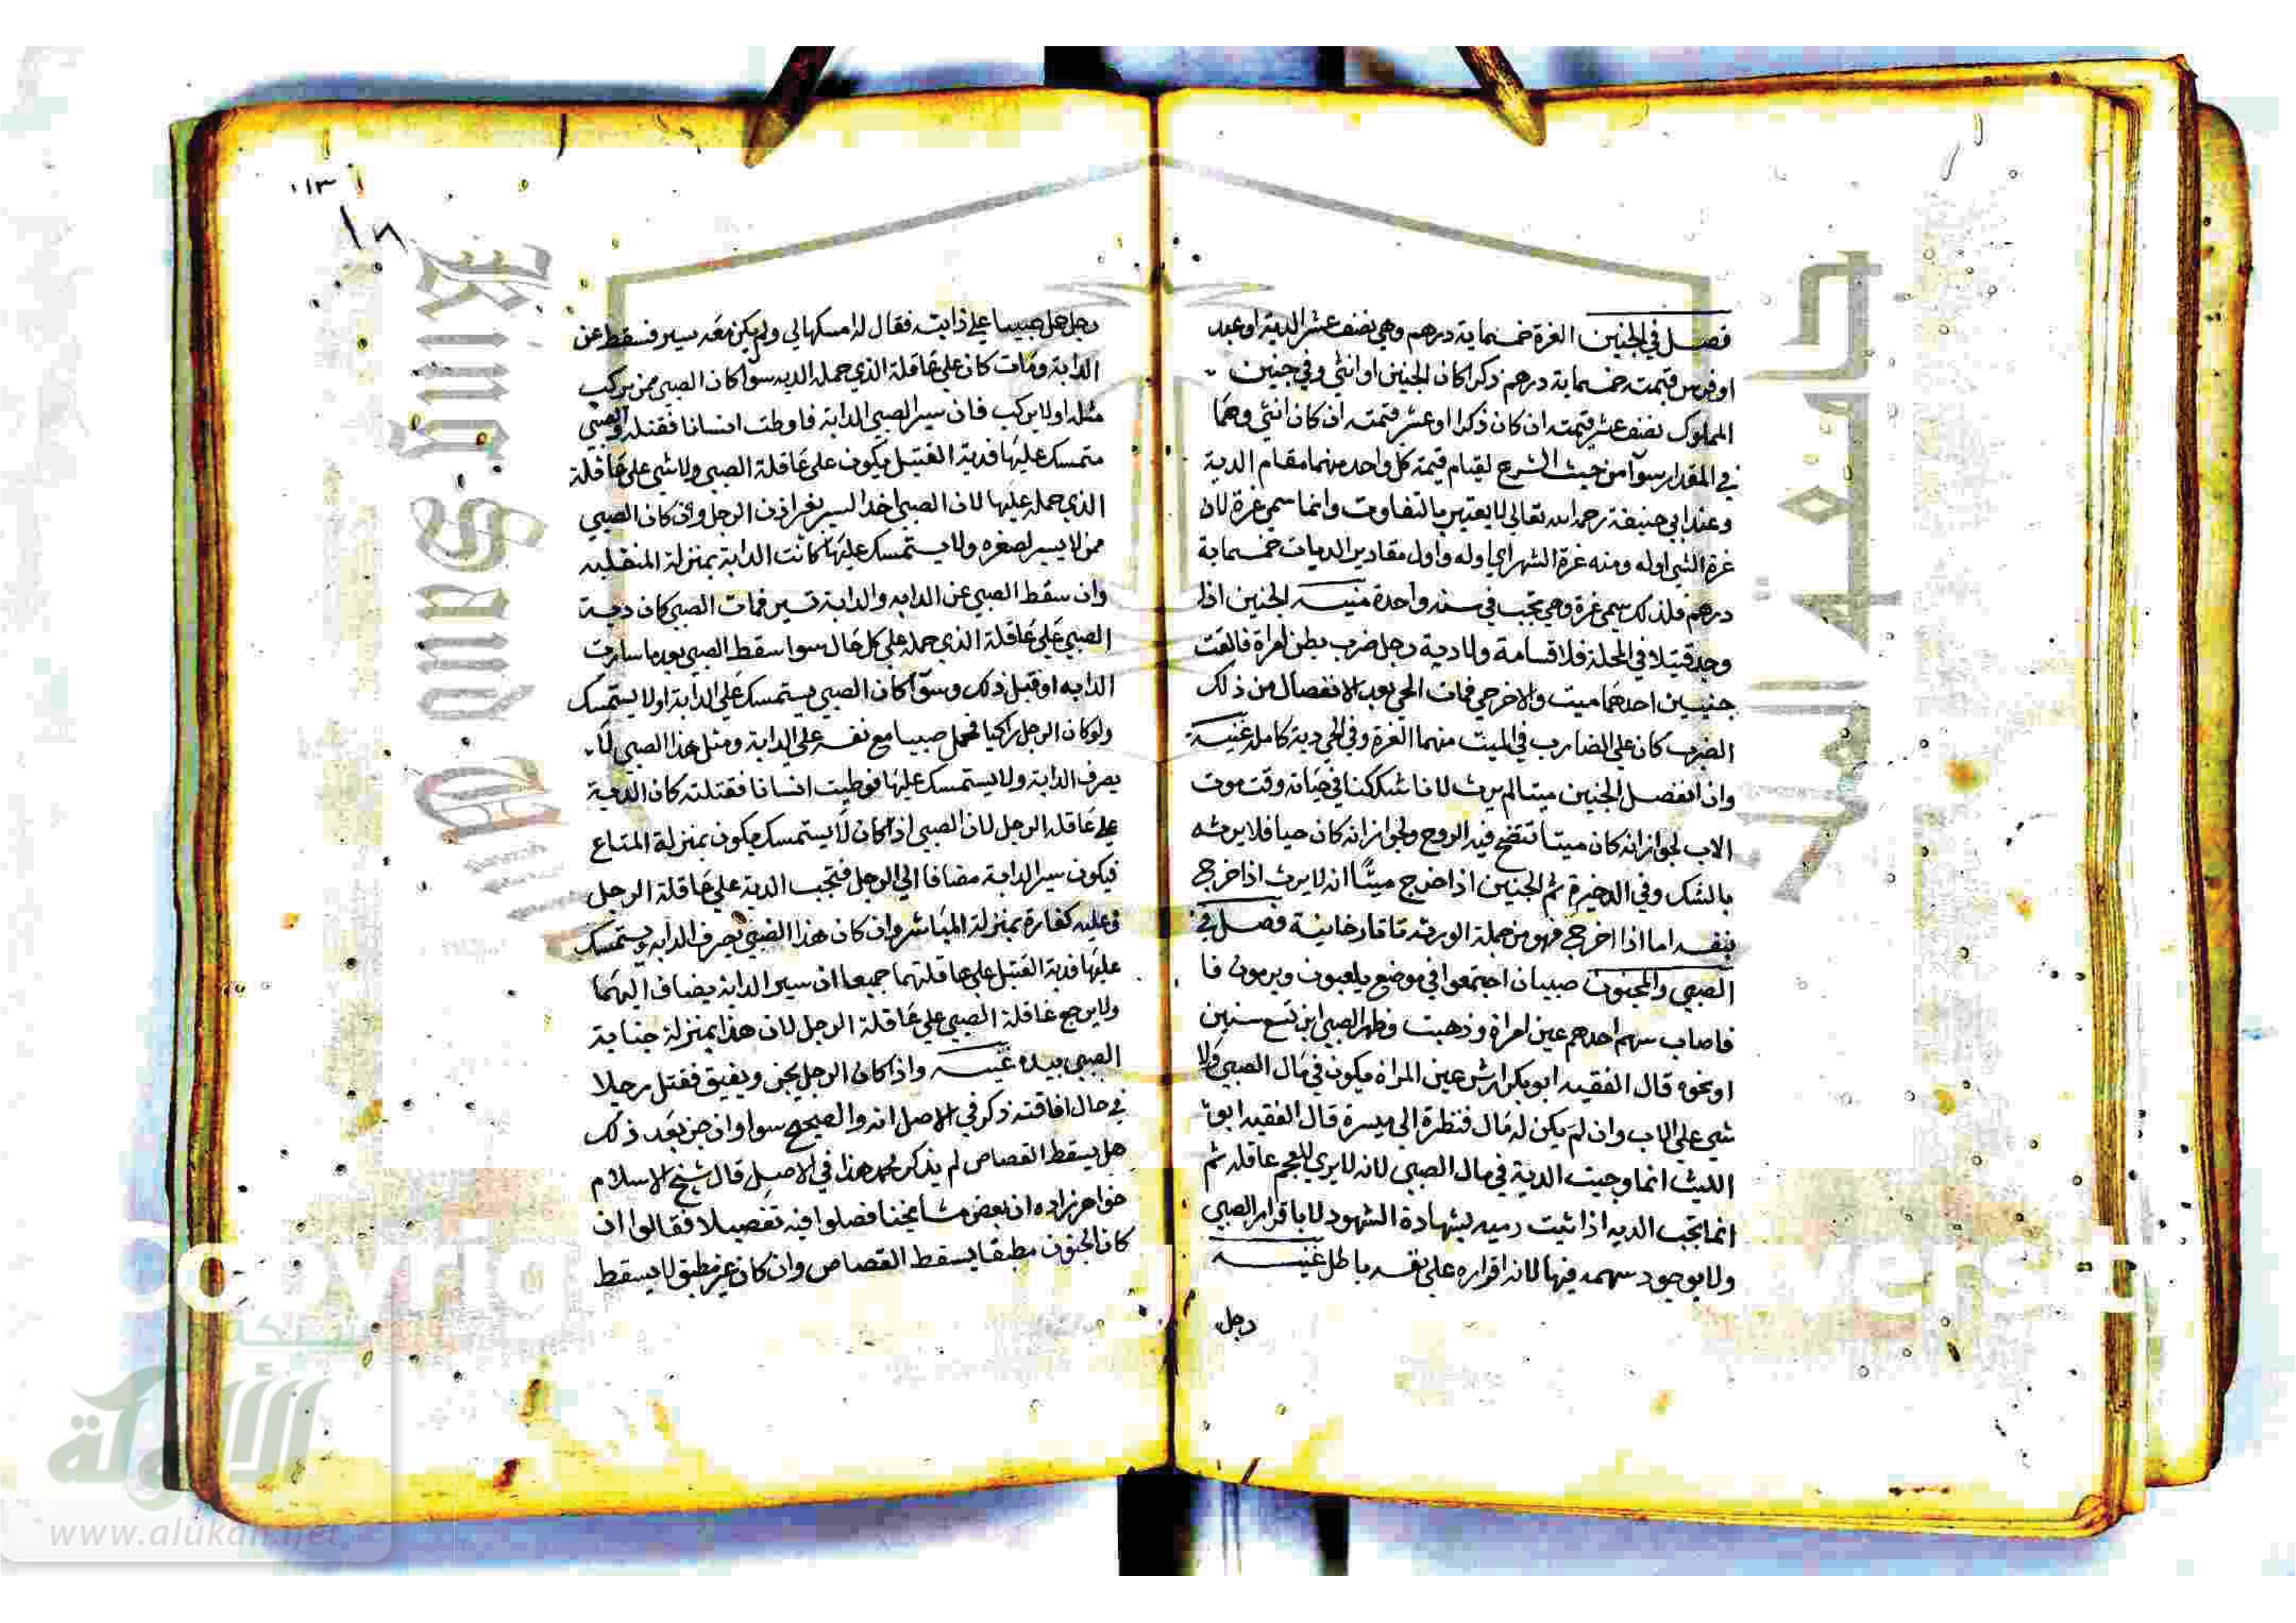 فصل في الجنين الغرة خمسماية درهم وهي نصف عشر الدية او عبد
او فرس قيمته خمسماية درهم ذكرا كان الجنين او انثي وفي جنين
المملوك نصف عشر قيمته ان كان ذكرا او عشر قيمته ان كان انثي وهما
في المقدار سوآ من حيث الشرع لقيام قيمة كل واحد منهما مقام الدية
وعند ابي حنيفة رحمه الله تعالي لا يعتبر بالتفاوت وانما سمي غرة لان
غرة الشي اوله ومنه غرة الشهر اي اوله واول مقادير الديات خمسماية
درهم فلذلك سمي غرة وهي تجب في سنه واحدة منيه الجنين اذا
وجد قتيلا في المحلة فلا قسامة ولا دية رجل ضرب بطن امراة فالقت
جنينين احدهما ميت والاخر حي فمات الحي بعد الانفصال من ذلك
الضرب كان علي الضارب في الميت منهما الغرة وفي الحي دية كاملة غنية
وان انفصل الجنين ميتا لم يرث لانا شككنا في حياته وقت موت
الاب لجواز انه كان ميتا تنفخ فيه الروح ولجواز انه كان حيا فلا يرثه
بالشك وفي الدخيرة ثم الجنين اذا خرج ميتا انه لا يرث اذا خرج
بنفسه اما اذا اخرج فهو من جملة الورثه تاتارخانية فصل في
الصبي والمجنون صبيان اجتمعوا في موضع يلعبون ويرمون فا
فاصاب سهم احدهم عين امراة وذهبت وظهر الصبي ابن تسع سنين
او نحوه قال الفقيه ابو بكر ارش عين المراه يكون في مال الصبي ولا
شي علي الاب وان لم يكن له مال فنظرة الي ميسرة قال الفقيه ابو
الليث انما وجبت الدية في مال الصبي لانه لا يري للعجم عاقله ثم
انما تجب الديه اذا ثبت رميه بشهادة الشهود لا باقرار الصبي
ولا بوجود سهمه فيها لان اقراره علي نفسه باطل غنيه
رجل
١٣
١٨
رجل حمل صبيا علي دابته فقال له امسكها لي ولم يكن معه سير فسقط عن
الدابة ومات كان علي عاقلة الذي حمله الديه سوا كان الصبي ممن يركب
مثله او لا يركب فان سير الصبي الدابة فاوطت انسانا فقتله والصبي
متمسك عليها فدية القتيل يكون علي عاقلة الصبي ولا شي علي عاقلة
الذي حمله عليها لان الصبي اخذ السير بغير اذن الرجل وان كان الصبي
ممن لا يسير لصغره ولا يستمسك عليها كانت الدابة بمنزلة المنفلتة
وان سقط الصبي عن الدابه والدابة تسير فمات الصبي كان دية
الصبي علي عاقلة الذي حمله علي كل حال سوا سقط الصبي بعد ما سارت
الدابه او قبل ذلك وسوآ كان الصبي يستمسك علي الدابة او لا يستمسك
ولو كان الرجل راكبا فحمل صبيا مع نفسه علي الدابة ومثل هذا الصبي لا
يصرف الدابة ولا يستمسك عليها فوطيت انسانا فقتلته كان الدية
علي عاقلة الرجل لان الصبي اذا كان لا يستمسك يكون بمنزلة المتاع
فيكون سير الدابة مضافا الي الرجل فتجب الدية علي عاقلة الرجل
وعليه كفارة بمنزلة المباشر وان كان هذا الصبي يصرف الدابه ويستمسك
عليها فدية القتيل علي عاقلتهما جميعا اذ سير الدابة يضاف اليهما
ولا يرجع عاقلة الصبي علي عاقلة الرجل لان هذا بمنزلة جناية
الصبي بيده غنيه واذا كان الرجل يجن ويفيق فقتل رجلا
في حال افاقته ذكر في الاصل انه والصحيح سوا وان جن بعد ذلك
هل يسقط القصاص لم يذكر محمد هذا في الاصل قال شيخ الاسلام
خواهر زاده ان بعض مشايخنا فصلوا فيه تفصيلا فقالوا ان
كان الجنون مطبقا يسقط القصاص وان كان غير مطبق لا يسقط
شبكة
الألوكة
www.alukah.net